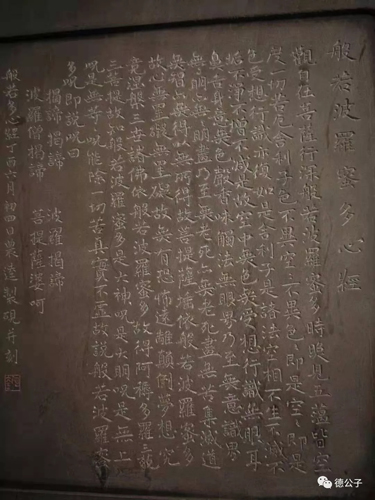 般若波羅蜜多心經
觀自在菩薩行深般若波羅蜜多時照見五蘊皆空
度一切苦厄舍利子色不異空〻不異色〻即是空〻即是
色受想行識亦復如是舍利子是諸法空相不生不滅不
垢不淨不增不減是故空中無色無受想行識無眼耳
鼻舌身意無色聲香味觸法無眼界乃至無意識界
無無明亦無無明盡乃至無老死亦無老死盡無苦集滅道
無智亦無得以無所得故菩提薩埵依般若波羅蜜多
故心無罣礙無罣礙故無有恐怖遠離顛倒夢想究
竟涅槃三世諸佛依般若波羅蜜多故得阿耨多羅三藐
三菩提故知般若波羅蜜多是大神呪是大明呪是無上
呪是無等〻呪能除一切苦真實不虛故說般若波羅蜜
多呪即說呪曰
揭諦揭諦 波羅揭諦
波羅僧揭諦 菩提薩婆訶
般若多心經丁酉六月初四日製硯刻
德公子